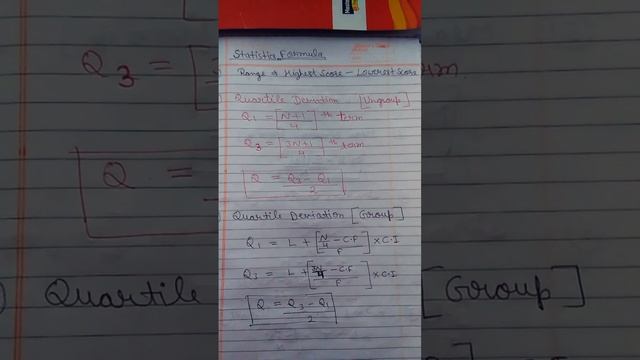 Statistics Formula
Range = Highest Score - Lowerest Score
Quartile Deviation [Ungroup]
Q₁ = [N+1/4]th term
Q₃ = [3N+1/4]th term
Q = Q₃ - Q₁/2
Quartile Deviation [Group]
Q₁ = L + [N/4 - C.F/F] × C.I
Q₃ = L + [3N/4 - C.F/F] × C.I
Q = Q₃ - Q₁/2
Q₃ =
Q =
Quartile
[Group]